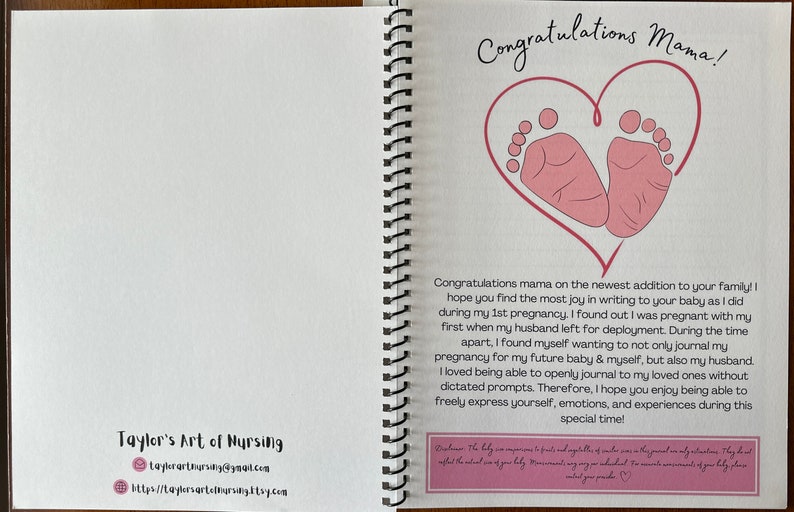 Taylor's Art of Nursing
taylorartnursing@gmail.com
https://taylorsartofnursing.Etsy.com
Congratulations Mama!
Congratulations mama on the newest addition to your family! I
hope you find the most joy in writing to your baby as I did
during my 1st pregnancy. I found out I was pregnant with my
first when my husband left for deployment. During the time
apart, I found myself wanting to not only journal my
pregnancy for my future baby & myself, but also my husband.
I loved being able to openly journal to my loved ones without
dictated prompts. Therefore, I hope you enjoy being able to
freely express yourself, emotions, and experiences during this
special time!
Disclaimer: The baby size comparisons to fruits and vegetables of similar sizes in this journal are only estimations. They do not
reflect the actual size of your baby. Measurements may vary per individual. For accurate measurements of your baby, please
contact your provider.